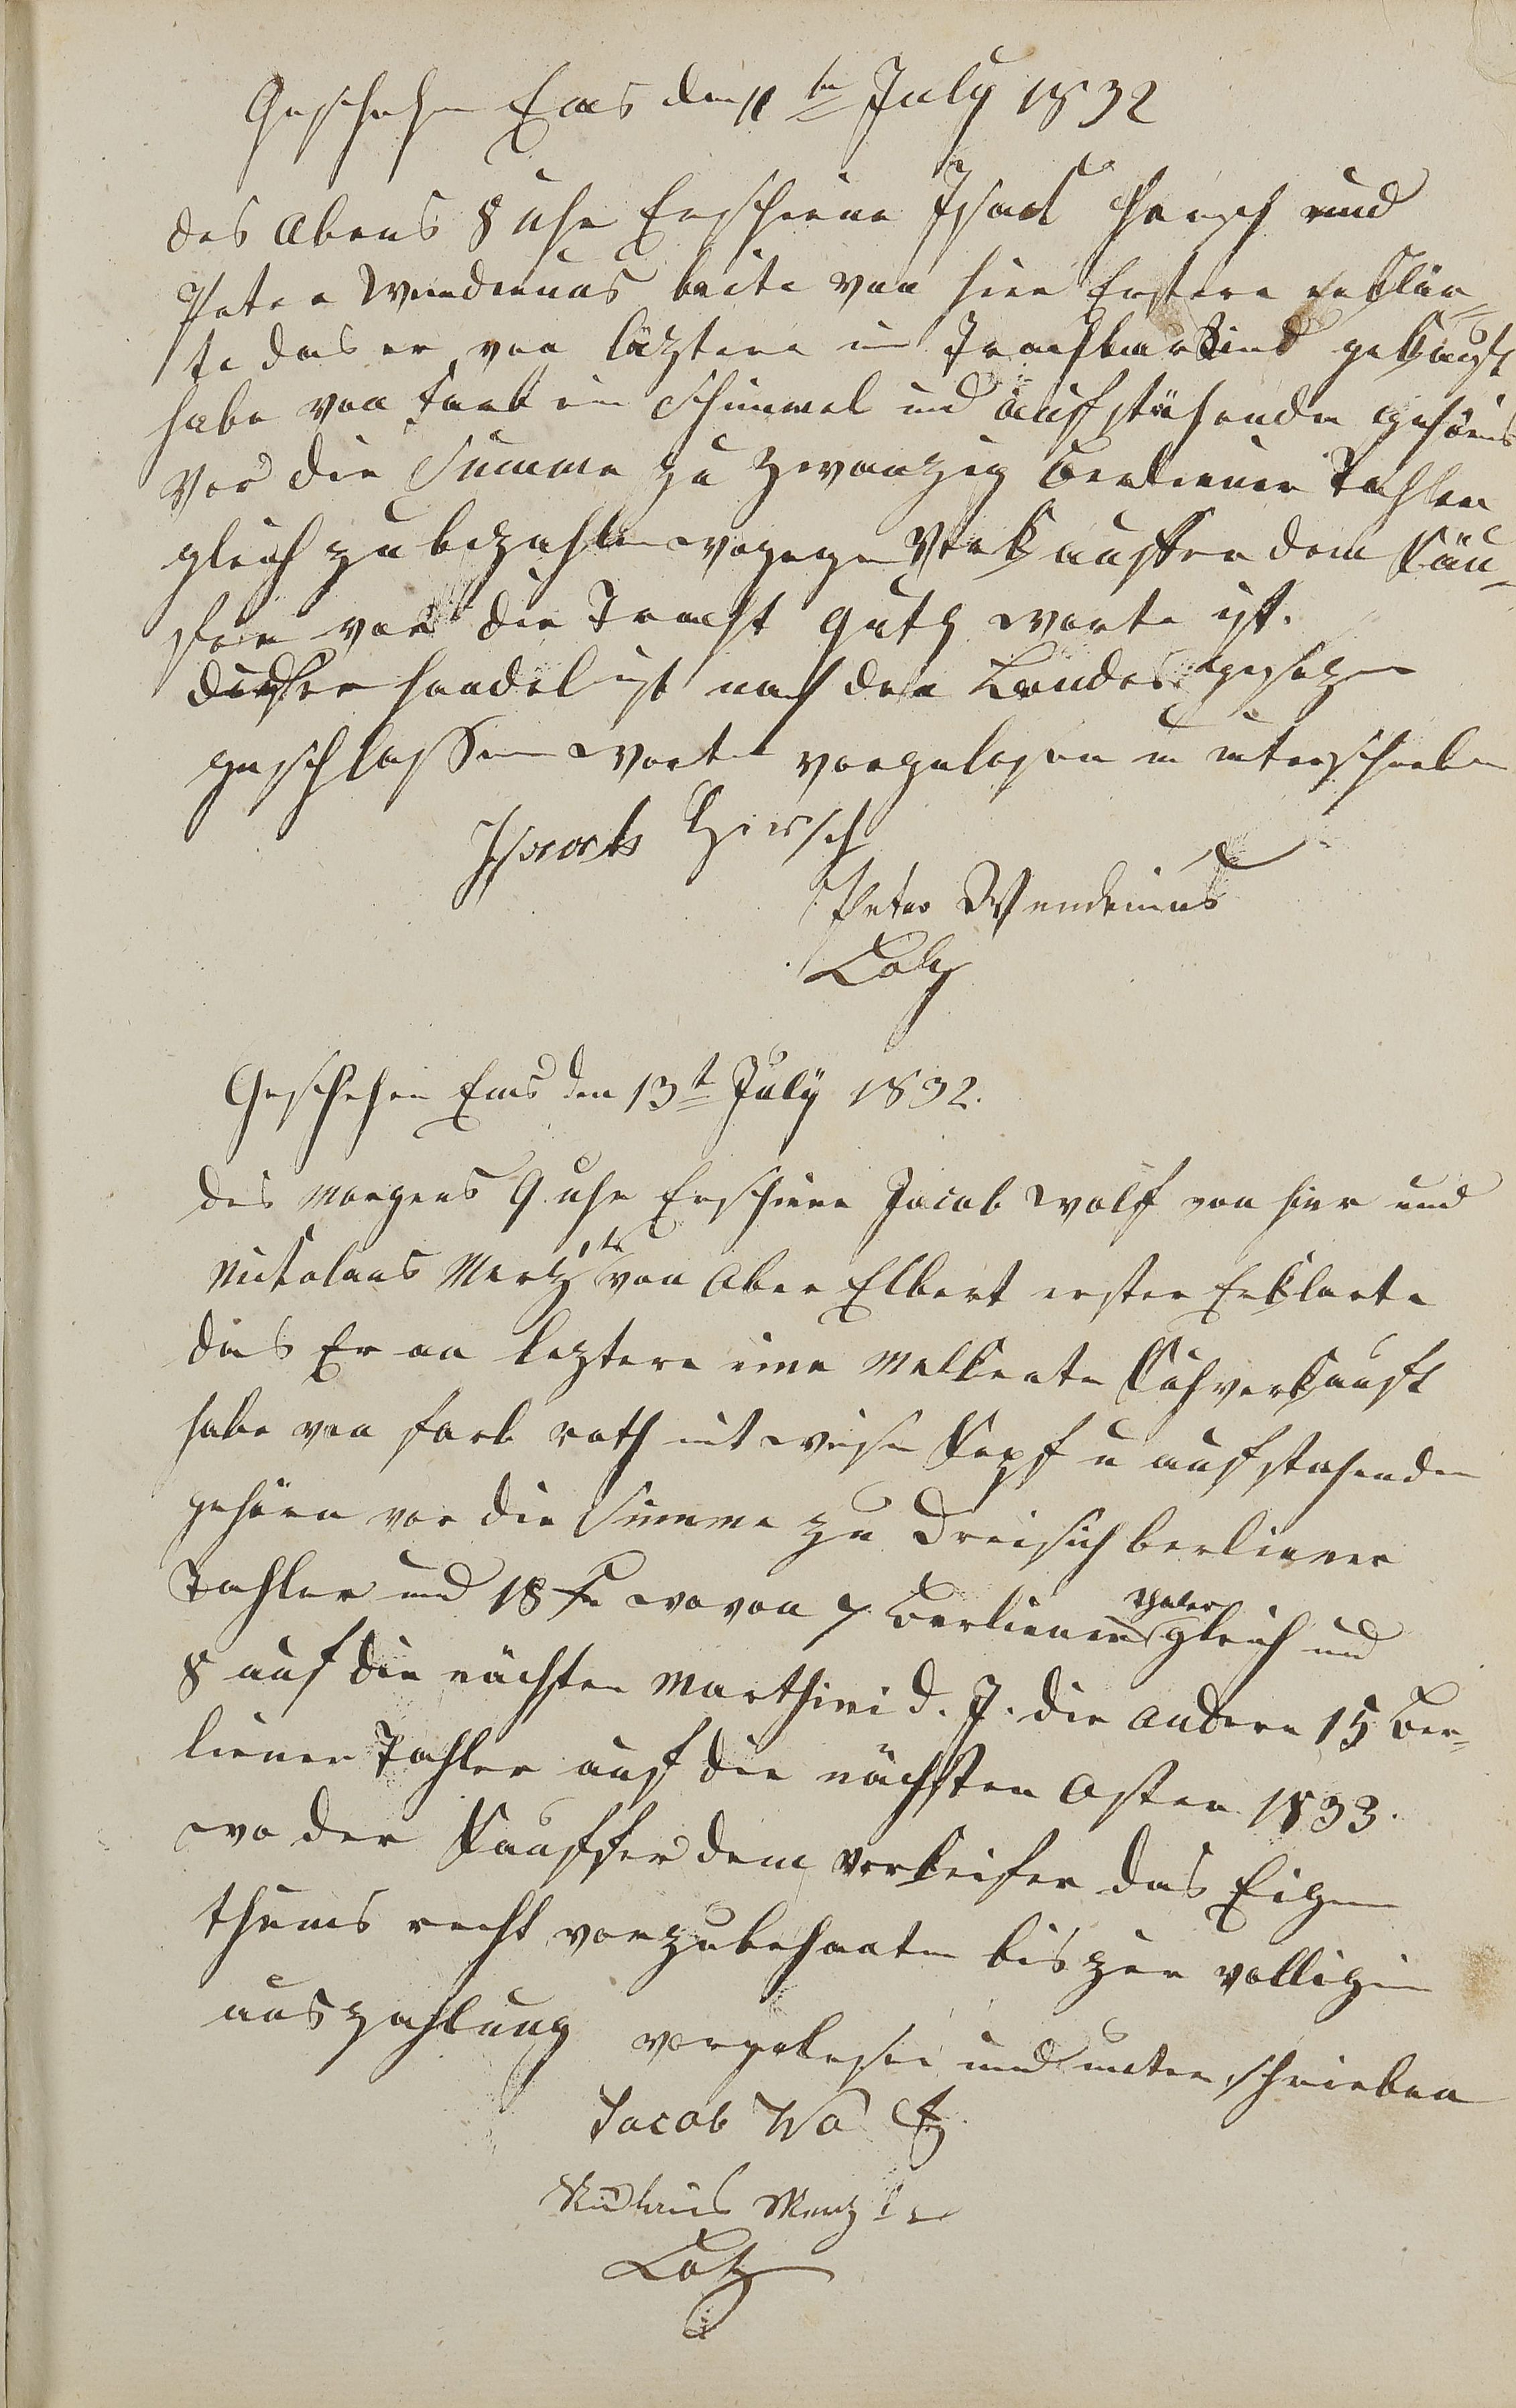 Geschehen Ems den 11<sup>ten</sup> July 1832
des abens 8 uhr Erschiene Isack Hersch und
Peter Wendenius beite von hier Erstere erklär=
te das er von läztere ein Trachbar Rind gekauft
habe von farb ein Schimmel und aufstähenden gehörns
vor die Summe zu zwanzig Berliener Tahler
gleich zu bezahlen wogegen Verkauffer dem Käu-
fer vor die Tracht guth worte ist.
dieser handel ist nach den Landes gesezen
geschlossen worte vorgelesen u unterschriben
Isaack Hirsch
Peter Wendenius
Lotz
Geschehen Ems den 13<sup>t</sup> July 1832.
des morgens 9 uhr Erschiene Jacob Wolf von hier und
Nickolaus Mertz 1te von Ober Elbert erster Erklarte
das Er an leztere eine Melkente Kuh verkauft
habe von farb roth mit weisen Kopf u aufstehenden
gehörn vor die Summe zu Dreisich berliener
Tahler und 18 wovon 7 Berliener thaler gleich und
8 auf die nächsten Marthini d. J. die andern 15 Ber=
liener Tahler auf die nächsten Osten 1833.
wo der Kauffer dem verkeifer das Eigen
thums recht vorzubehaaten bis zur volligen
auszahlung vorgelesen und unterschrieben
Jacob Wolf
Nicklaus Mertz 1te
Lotz